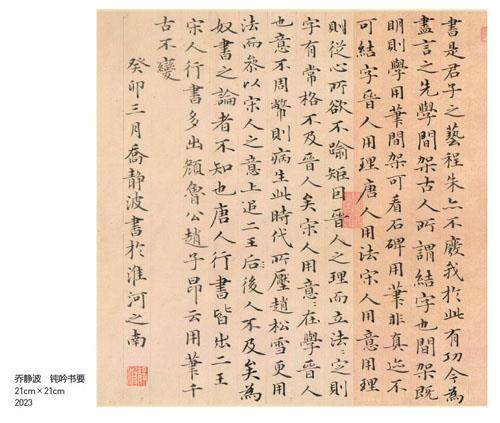 書是君子之藝程朱亦不廢我於此有功今為
盡言之先學間架古人所謂結字也間架既
明則學用筆間架可看石碑用筆非真迹不
可結字晉人用理唐人用法宋人用意用理
則從心所欲不踰矩因晉人之理而立法:定則
字有常格不及晉人矣宋人用意:在學晉人
也意不周幣則病生此時代所壓趙松雪更用
法而參以宋人之意上追二王后:後人不及矣為
奴書之論者不知也唐人行書皆出二王
宋人行書多出顏魯公趙子昂云用筆千
古不變
癸卯三月喬靜波書於淮河之南
乔静波 钝吟书要
21cm×21cm
2023